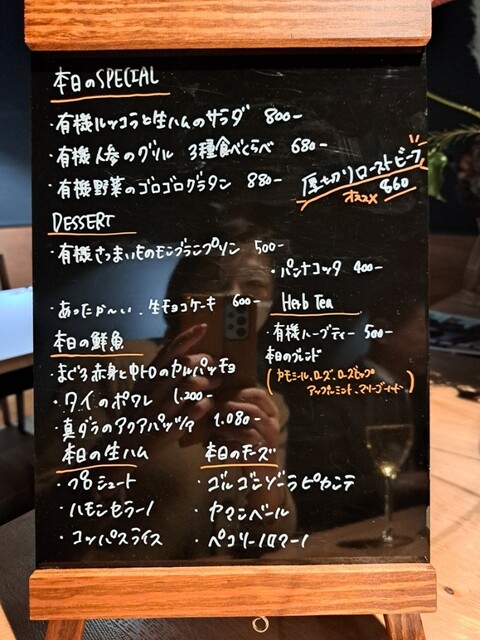 本日のSPECIAL
・有機ルッコラと生ハムのサラダ 800-
・有機人参のグリル 3種食べくらべ 680-
・有機野菜のゴロゴログラタン 880-
厚切りローストビーフ
オススメ 860
DESSERT
・有機さつまいものモンブランプリン 500-
・パンナコッタ 400-
・あったか〜い 生チョコケーキ 600-
Herb Tea
・有機ハーブティー 500-
本日のブレンド
(カモミール、ローズ、ローズヒップ
アップルミント、マリーゴールド)
本日の鮮魚
・まぐろ赤身と中トロのカルパッチョ
・タイのポワレ 1.200-
・真ダラのアクアパッツァ 1.080-
本日の生ハム
・プロシュート
・ハモンセラーノ
・コッパスライス
本日のチーズ
・ゴルゴンゾーラピカンテ
・カマンベール
・ペコリーノロマーノ